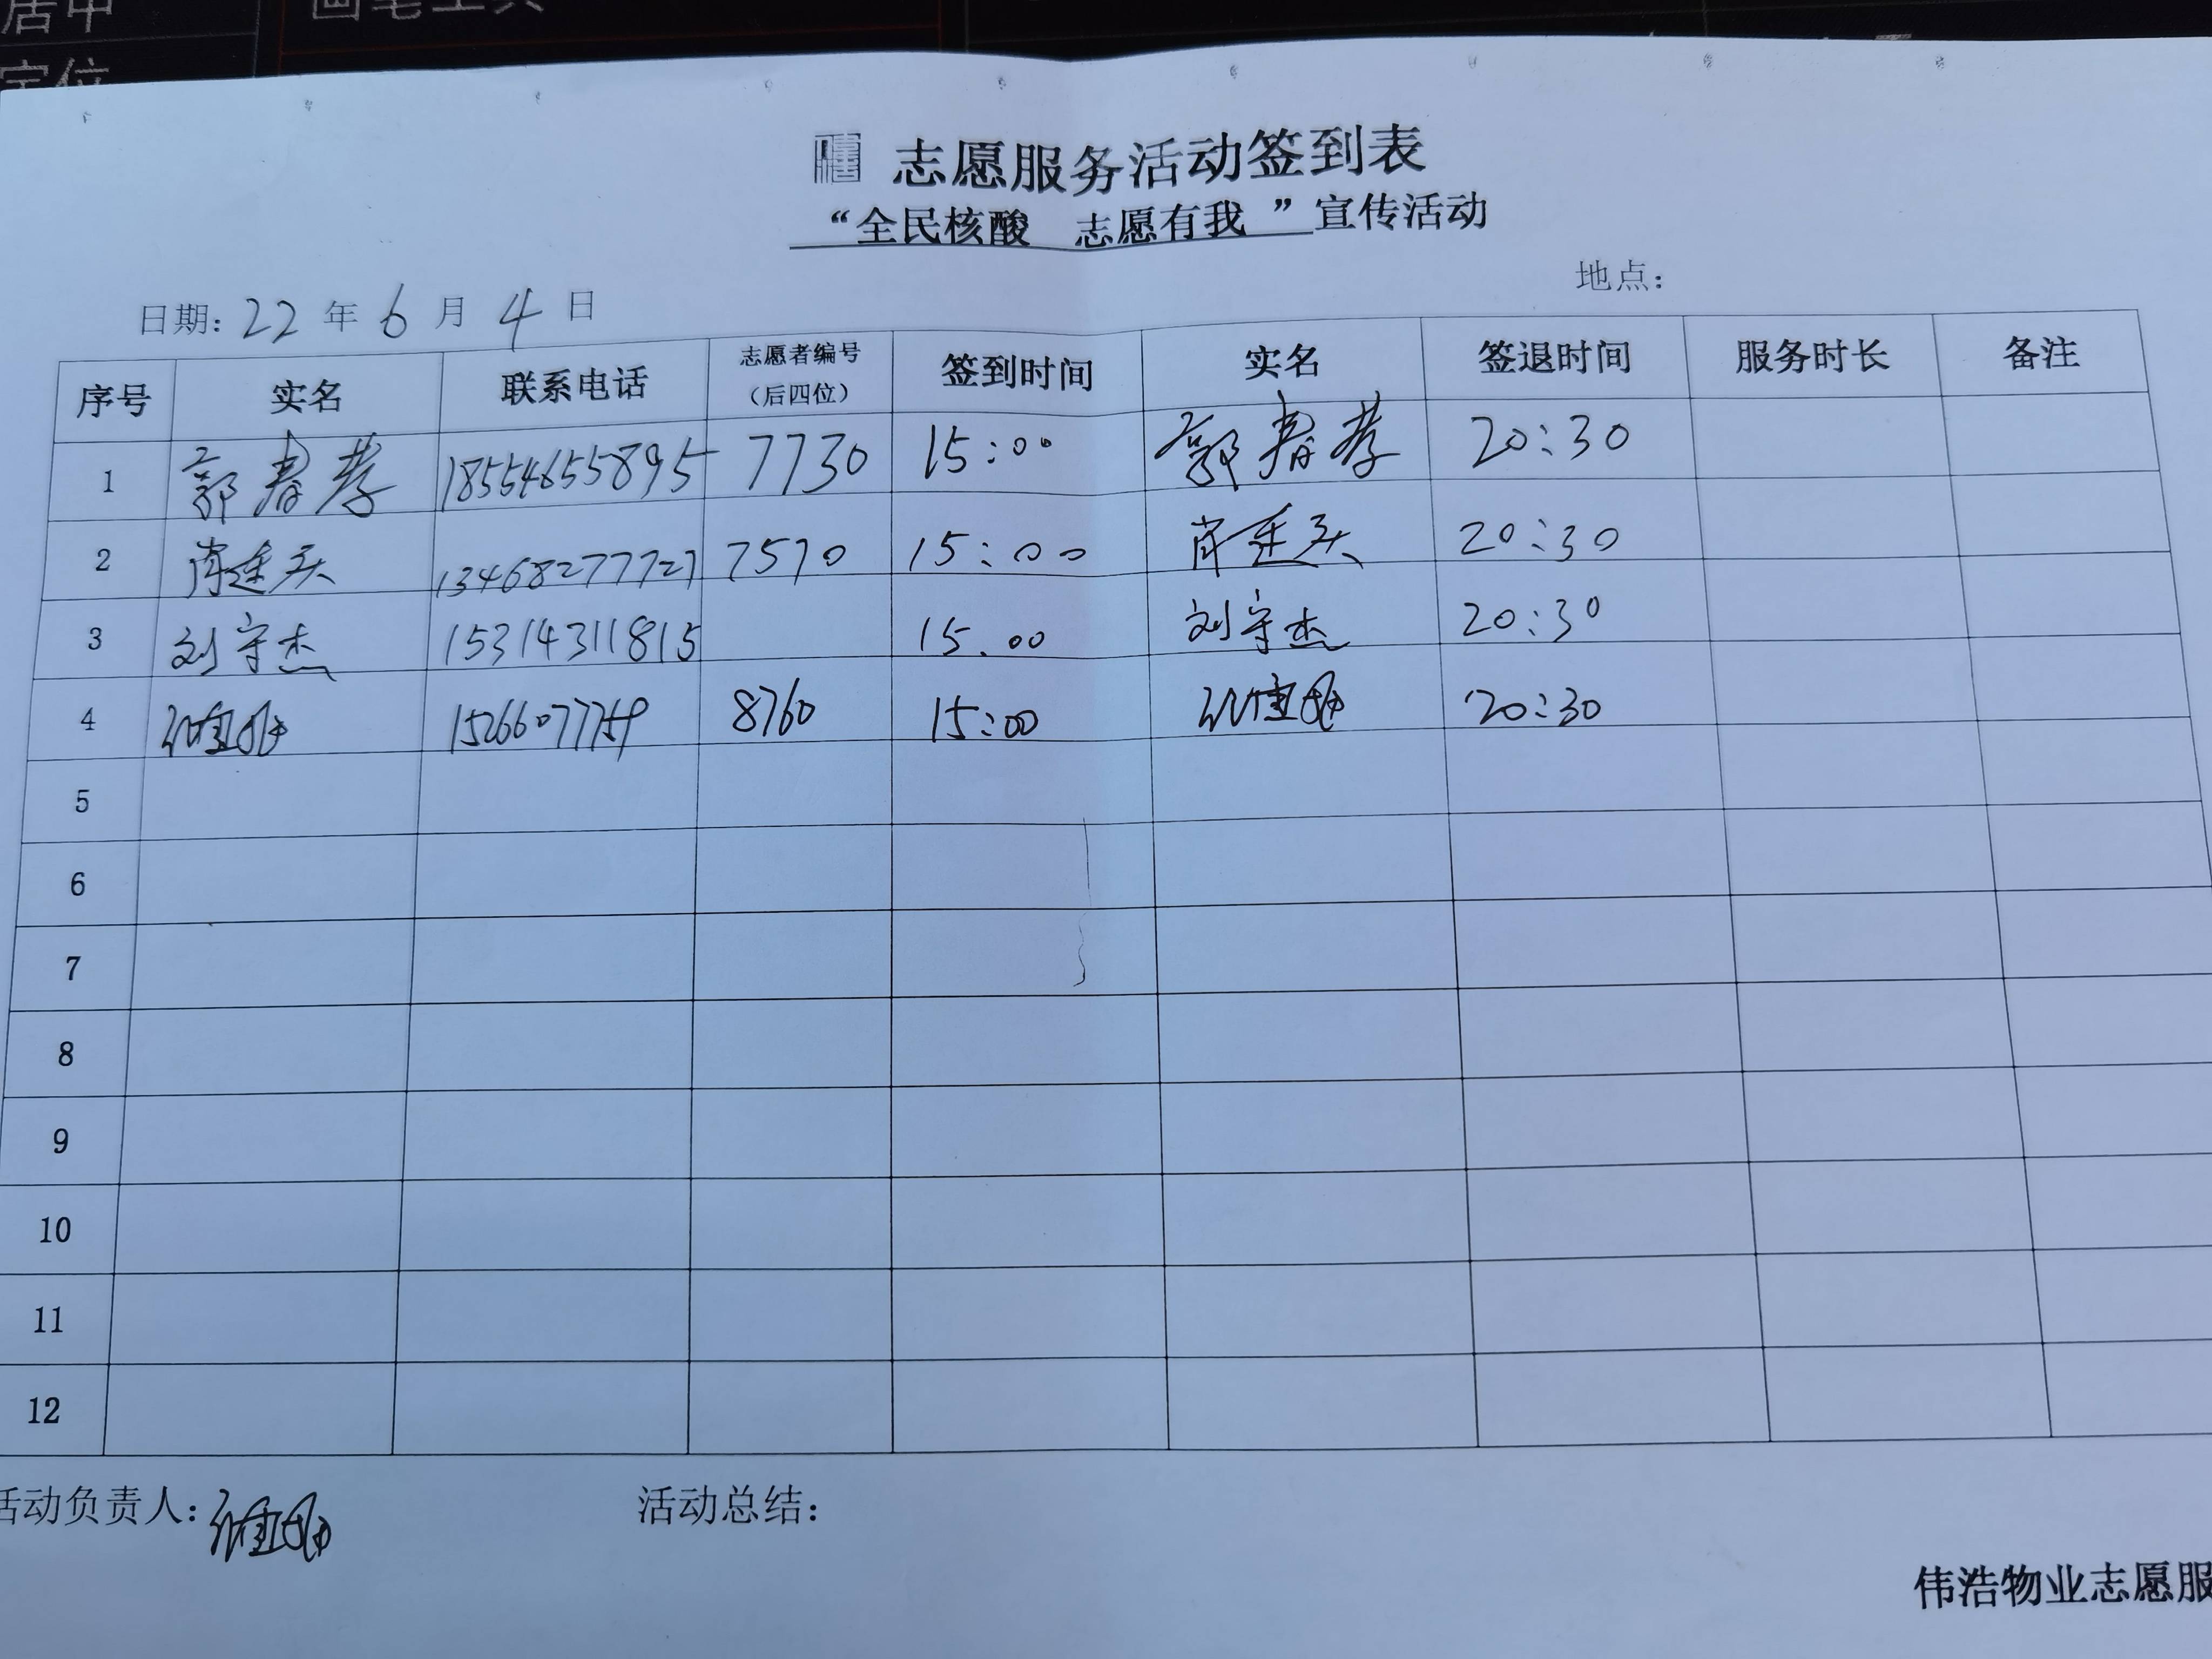 居中
画笔工具
定位
志愿服务活动签到表
“全民核酸 志愿有我”宣传活动
日期: 22 年 6 月 4 日 地点:
序号 实名 联系电话 志愿者编号（后四位） 签到时间 实名 签退时间 服务时长 备注
1 郭春 18554655895 7730 15:00 郭春 20:30
2 肖廷 13468277727 7570 15:00 肖廷 20:30
3 刘守杰 15314311815 15.00 刘守杰 20:30
4 15266077759 8760 15:00 20:30
5
6
7
8
9
10
11
12
活动负责人: 活动总结:
伟浩物业志愿服